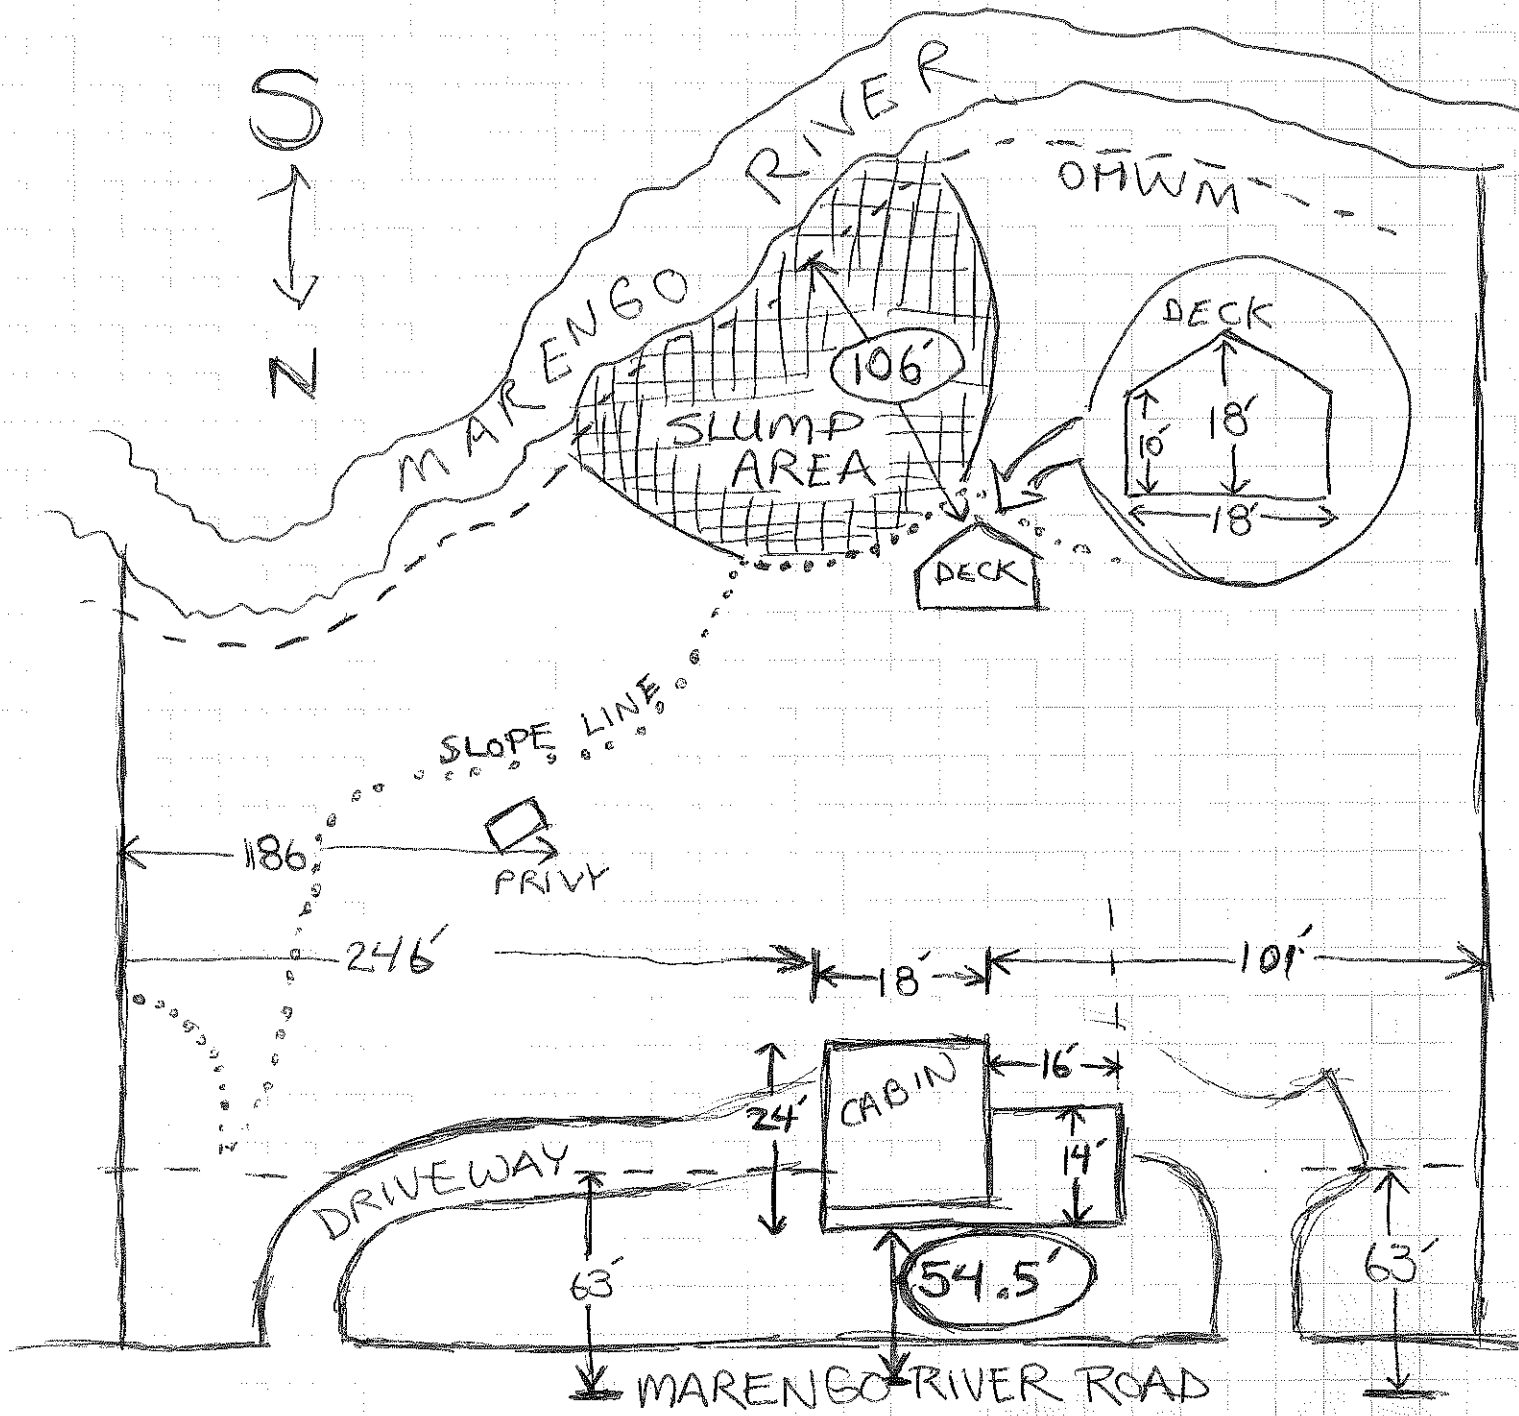 S
N
MARENGO RIVER
OHWM
DECK
10'
18'
18'
106'
SLUMP
AREA
DECK
SLOPE LINE
186
PRIVY
246'
18'
101'
16'
24'
CABIN
14'
DRIVEWAY
63'
54.5'
63'
MARENGO RIVER ROAD